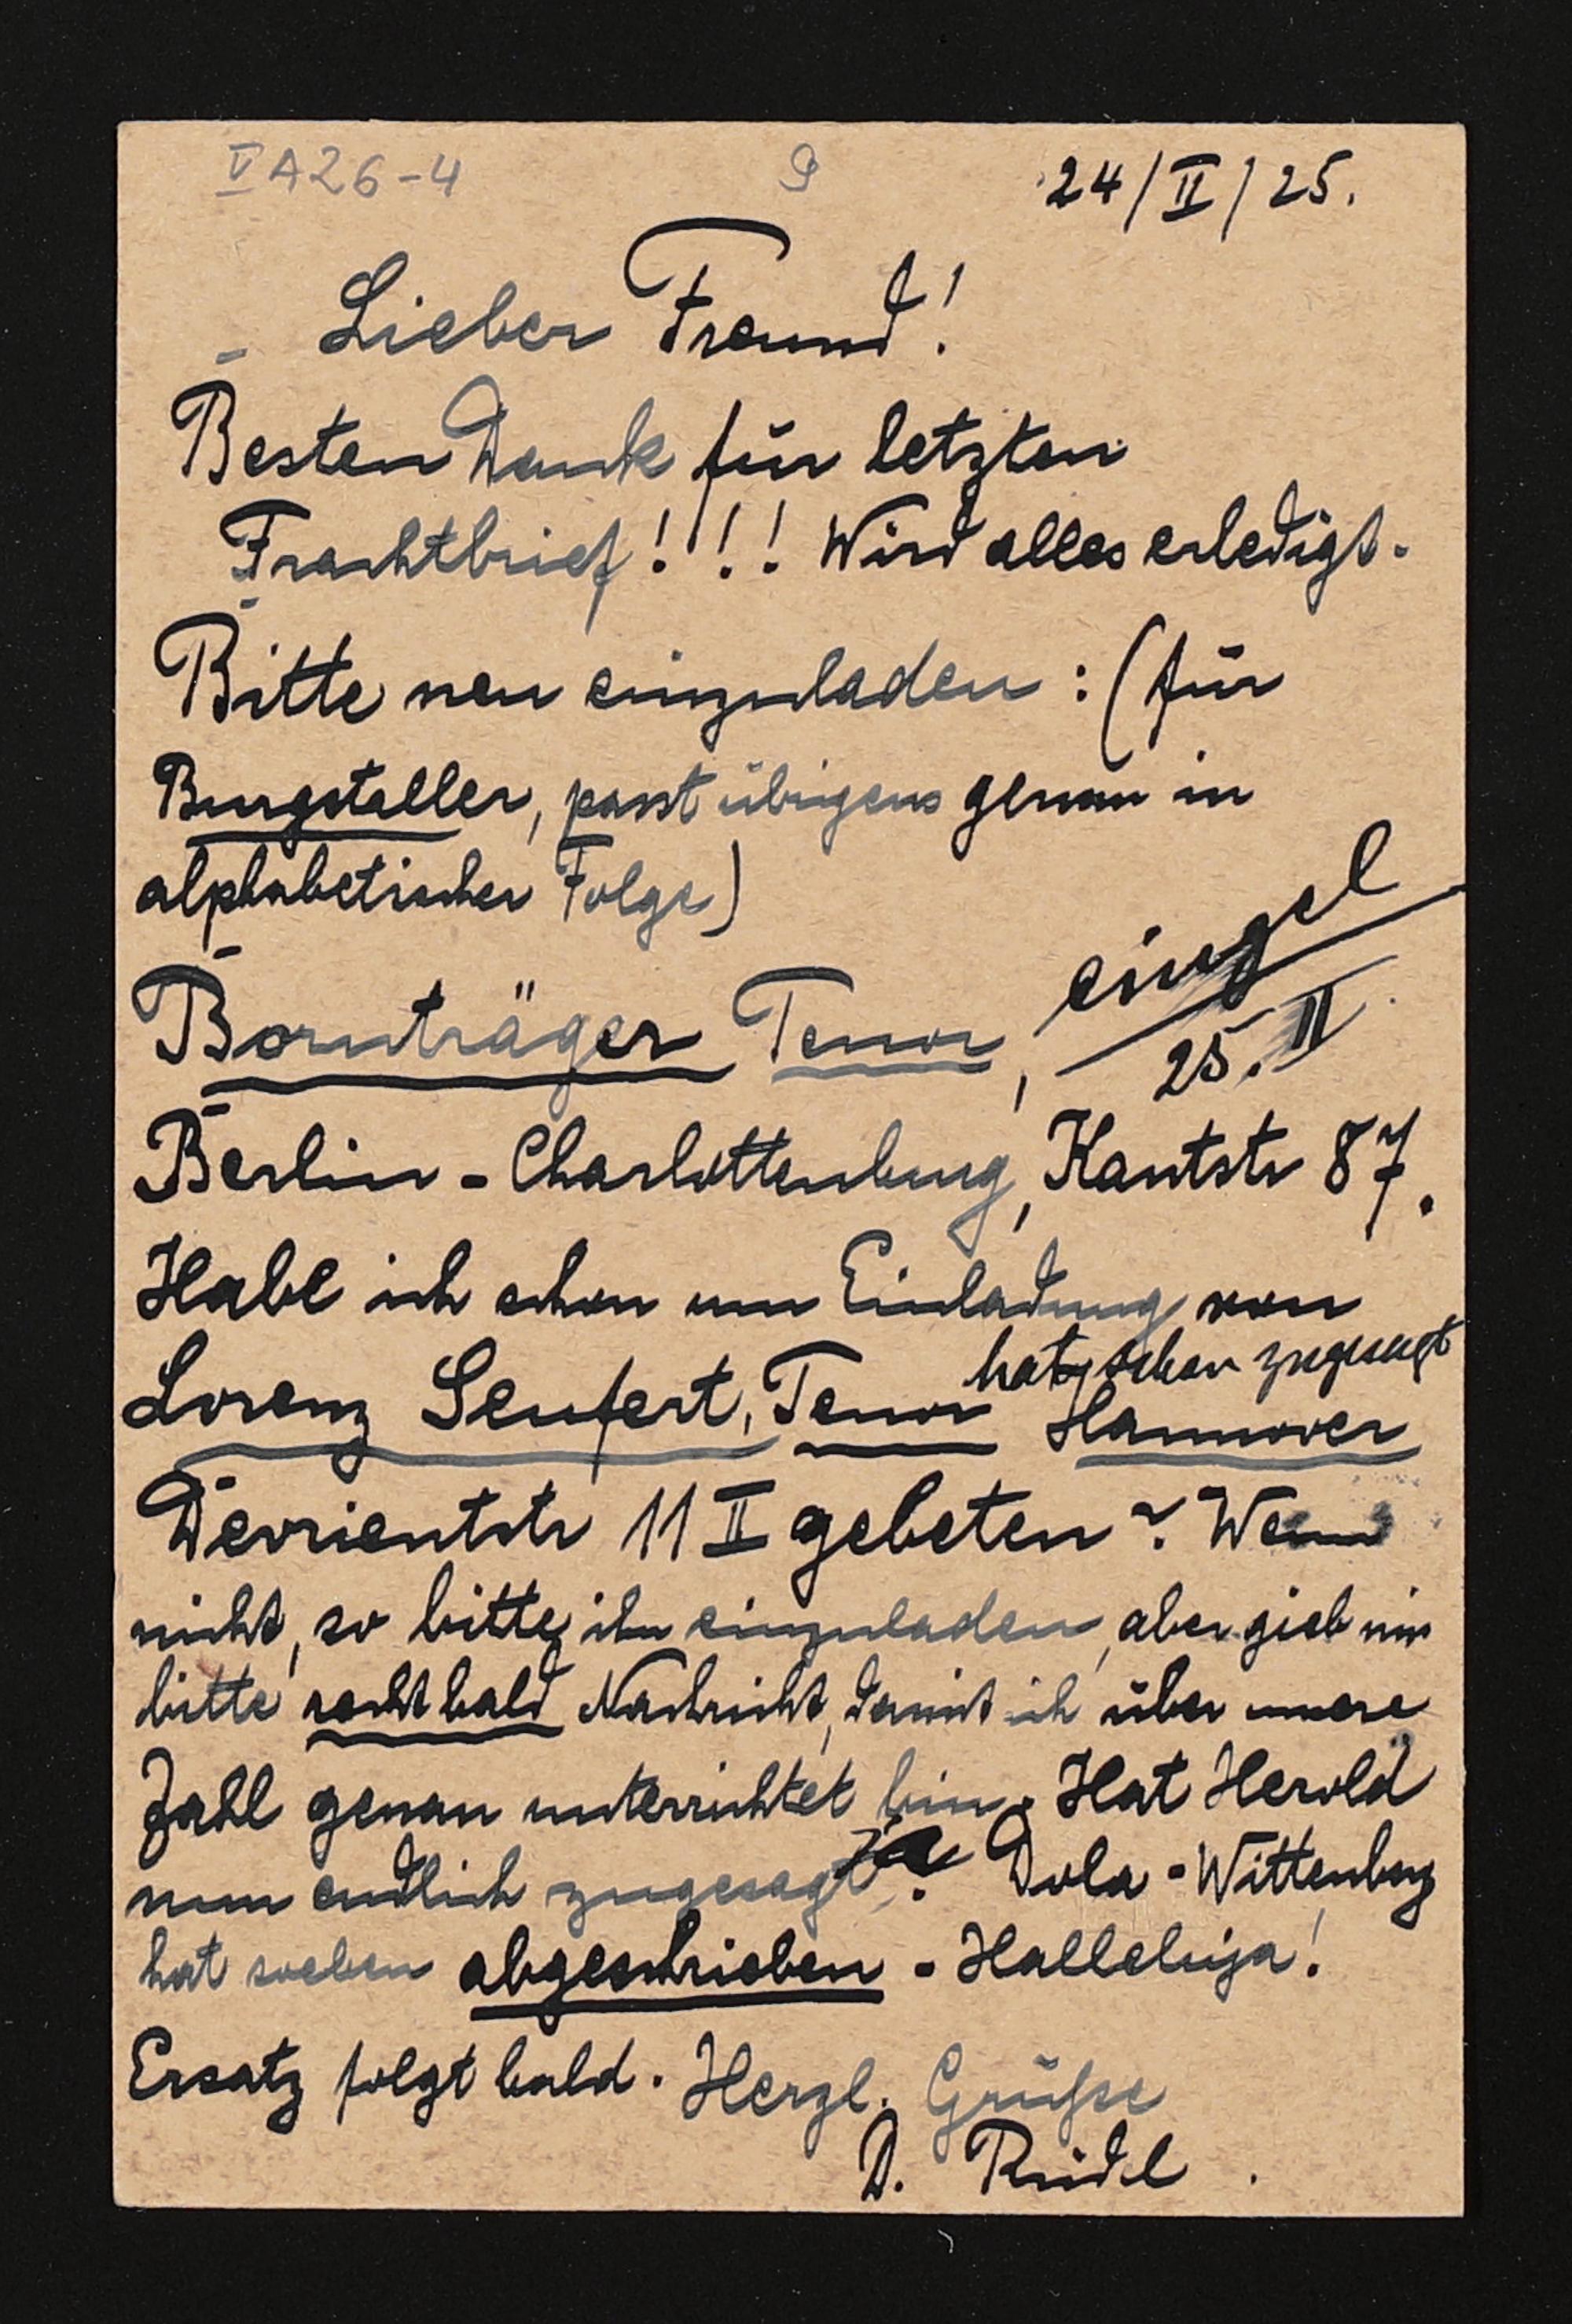 V A 26-4 9 24/II/25.
Lieber Freund!
Besten Dank für letzten
Frachtbrief!!!! Wird alles erledigt.
Bitte neu einzuladen: (für
Burgsteller, passt übrigens genau in
alphabetischer Folge)
eingel
25. II
Bornträger Tenor,
Berlin-Charlottenburg, Kantstr 87.
Habe ich schon um Einladung von
hat schon zugesagt
Lorenz Seufert, Tenor Hannover
Devrientstr 11 II gebeten? Wenn
nicht, so bitte ihn einzuladen, aber gieb mir
bitte recht bald Nachricht, damit ich über unsere
Zahl genau unterrichtet bin. Hat Herold
ja
nun endlich zugesagt? Dola-Wittenberg
hat soeben abgeschrieben - Halleluja!
Ersatz folgt bald. Herzl. Grüße
D. Reidl